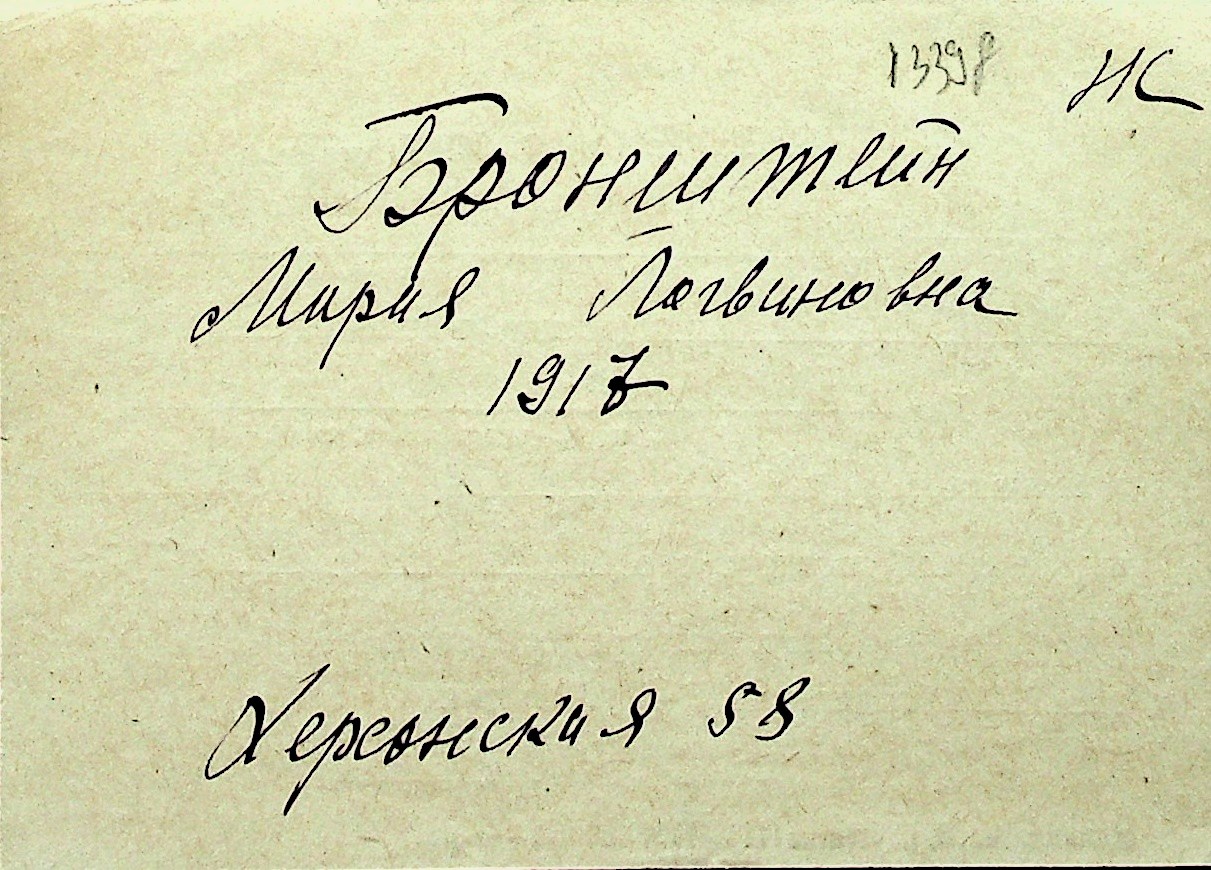 13398 НС
Бронштейн
Мария Логвиновна
1917
Херсонская 58